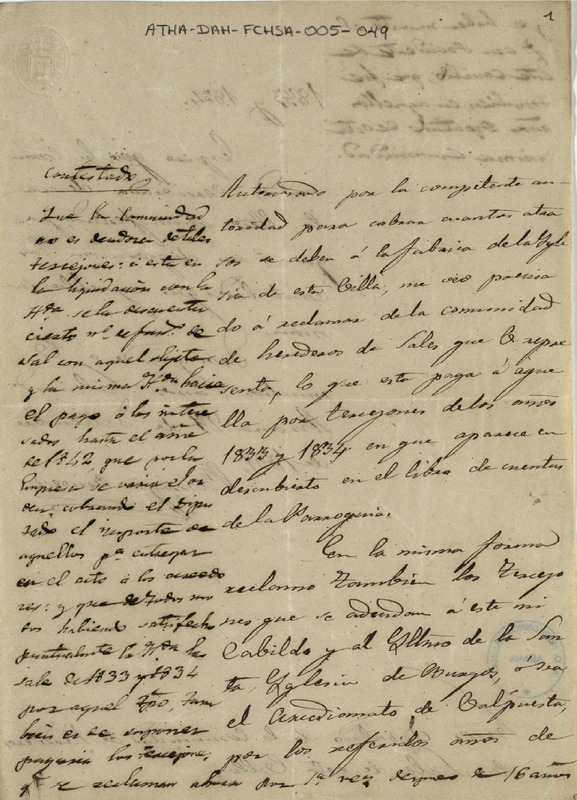 1
ATHA-DAH-FCHSA-005-049
Contestado
Que la Comunidad
no es deudora de tales
tercejones: si esta en
la liquidacion con la
Hda se la descuentan
cierto nº de fans de
Sal con aquel objeto
y la misma Hda hacia
el pago á los intere
sados hasta el año
de 1842 que
se varió el or
den cobrando el Dipu
tado el importe de
aquellos pª entregar
en el acto á los acreedo
res: y que de todos mo
dos habiendo satisfecho
puntualmte la Hda la
sal de 1833 y 1834
por aquel tpo, tam
bien es de suponer
pagaria los tercejones,
qe se reclaman ahora por 1ª vez despues de 16 años
Autorizado por la competente au-
toridad para cobrar cuantos atra
sos se deben á la fábrica de la Ygle
sia de esta Villa, me veo precisa
do á reclamar de la comunidad
de herederos de Sales que V. repre
senta, lo que esta paga á aque
lla por tercejones de los años
1833 y 1834 en que aparece en
descubierto en el libro de cuentas
de la Parroquia.
En la misma forma
reclamo tambien los tercejo
nes que se adeudan á este mi
Cabildo y al Yltmo de la San
ta Yglesia de Burgos, ó sea
el Arcedianato de Valpuesta,
por los referidos años de